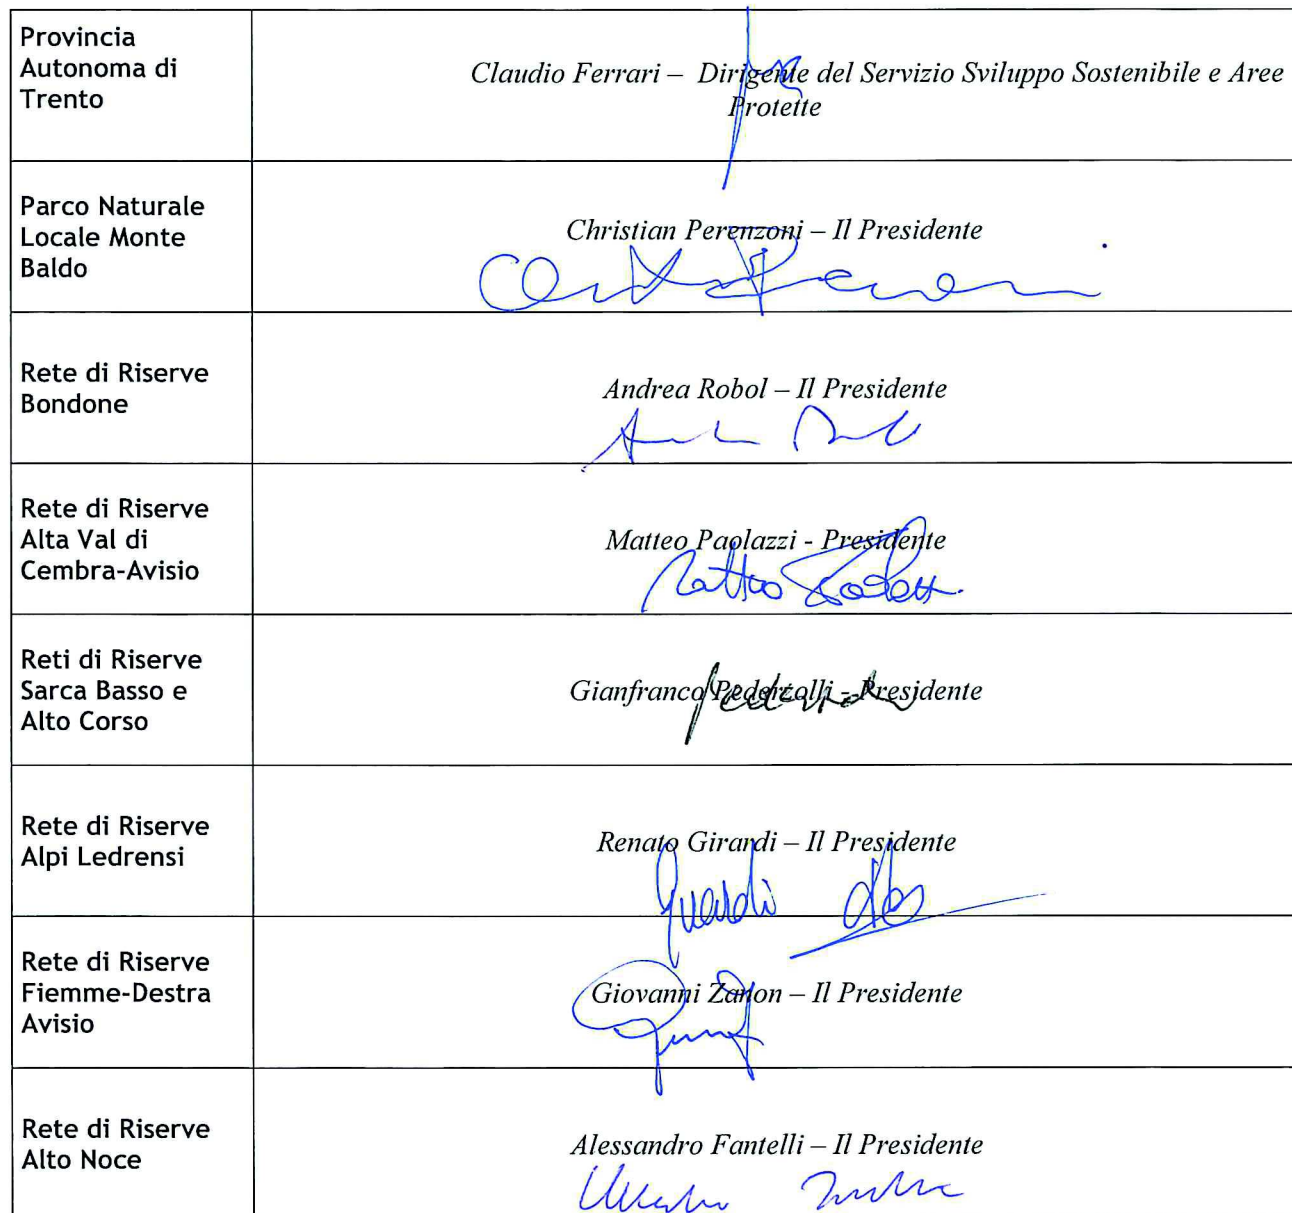 Provincia
Autonoma di
Trento
Claudio Ferrari – Dirigente del Servizio Sviluppo Sostenibile e Aree
Protette
Parco Naturale
Locale Monte
Baldo
Christian Perenzoni – Il Presidente
Rete di Riserve
Bondone
Andrea Robol – Il Presidente
Rete di Riserve
Alta Val di
Cembra-Avisio
Matteo Paolazzi - Presidente
Reti di Riserve
Sarca Basso e
Alto Corso
Gianfranco Pederzolli - Presidente
Rete di Riserve
Alpi Ledrensi
Renato Girardi – Il Presidente
Rete di Riserve
Fiemme-Destra
Avisio
Giovanni Zanon – Il Presidente
Rete di Riserve
Alto Noce
Alessandro Fantelli – Il Presidente